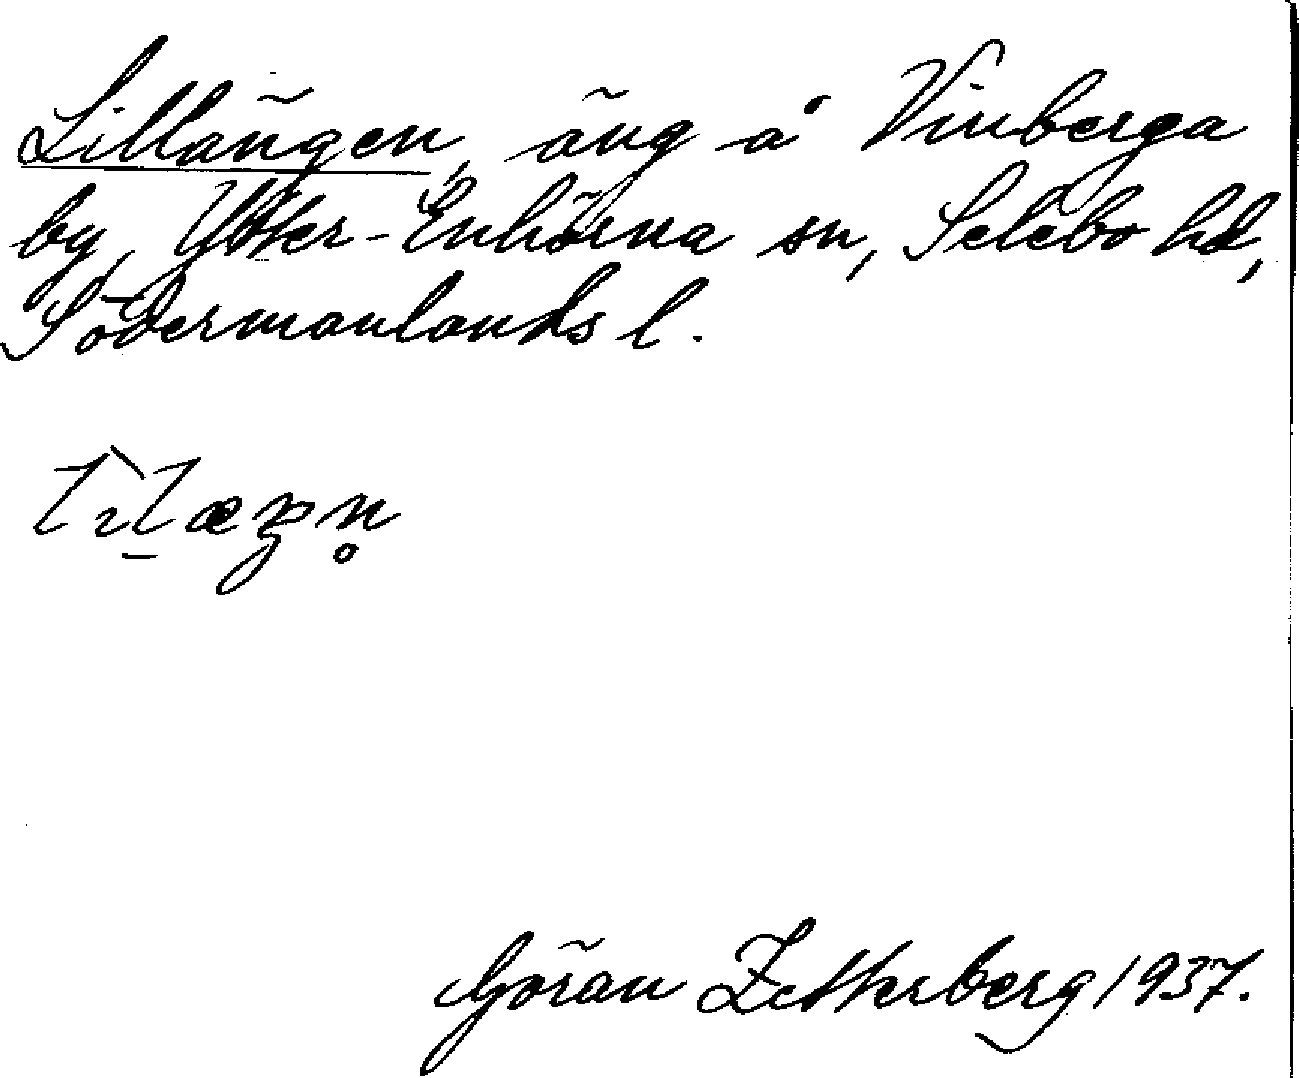 Lillängen, äng å Vinberga
by, Ytter-Enhörna sn, Selebo hd,
Södermanlands l.
Göran Zetterberg 1937.